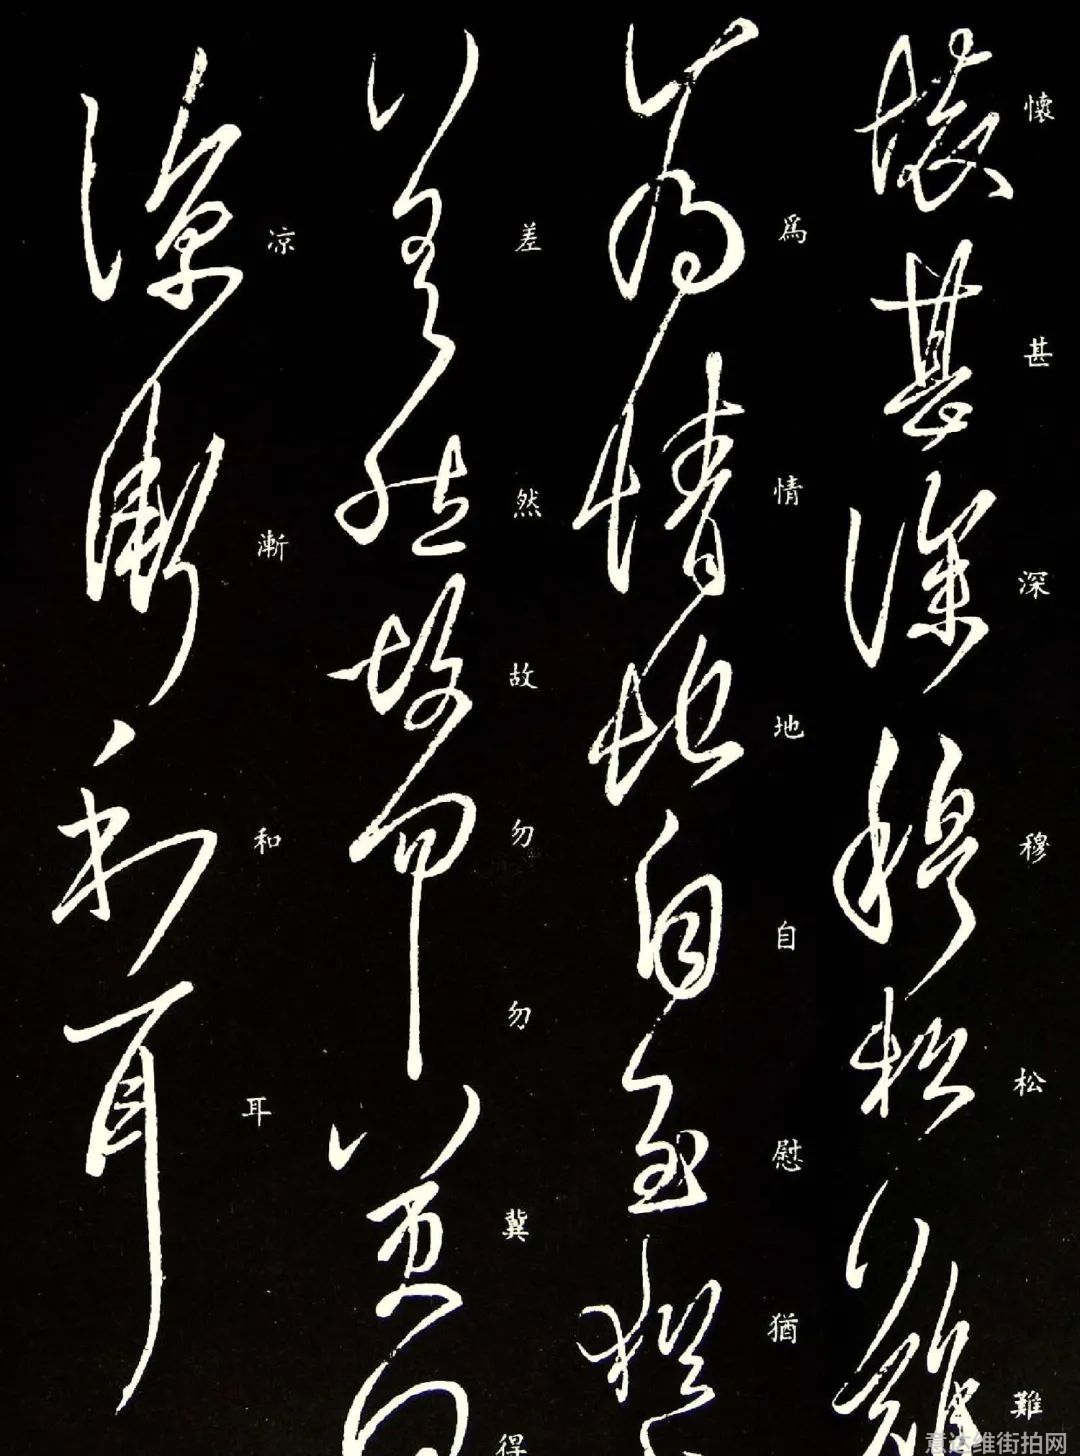 懷甚深穆松難
為情地自慰猶
差然故勿勿冀得
凉漸和耳
意达维街拍网